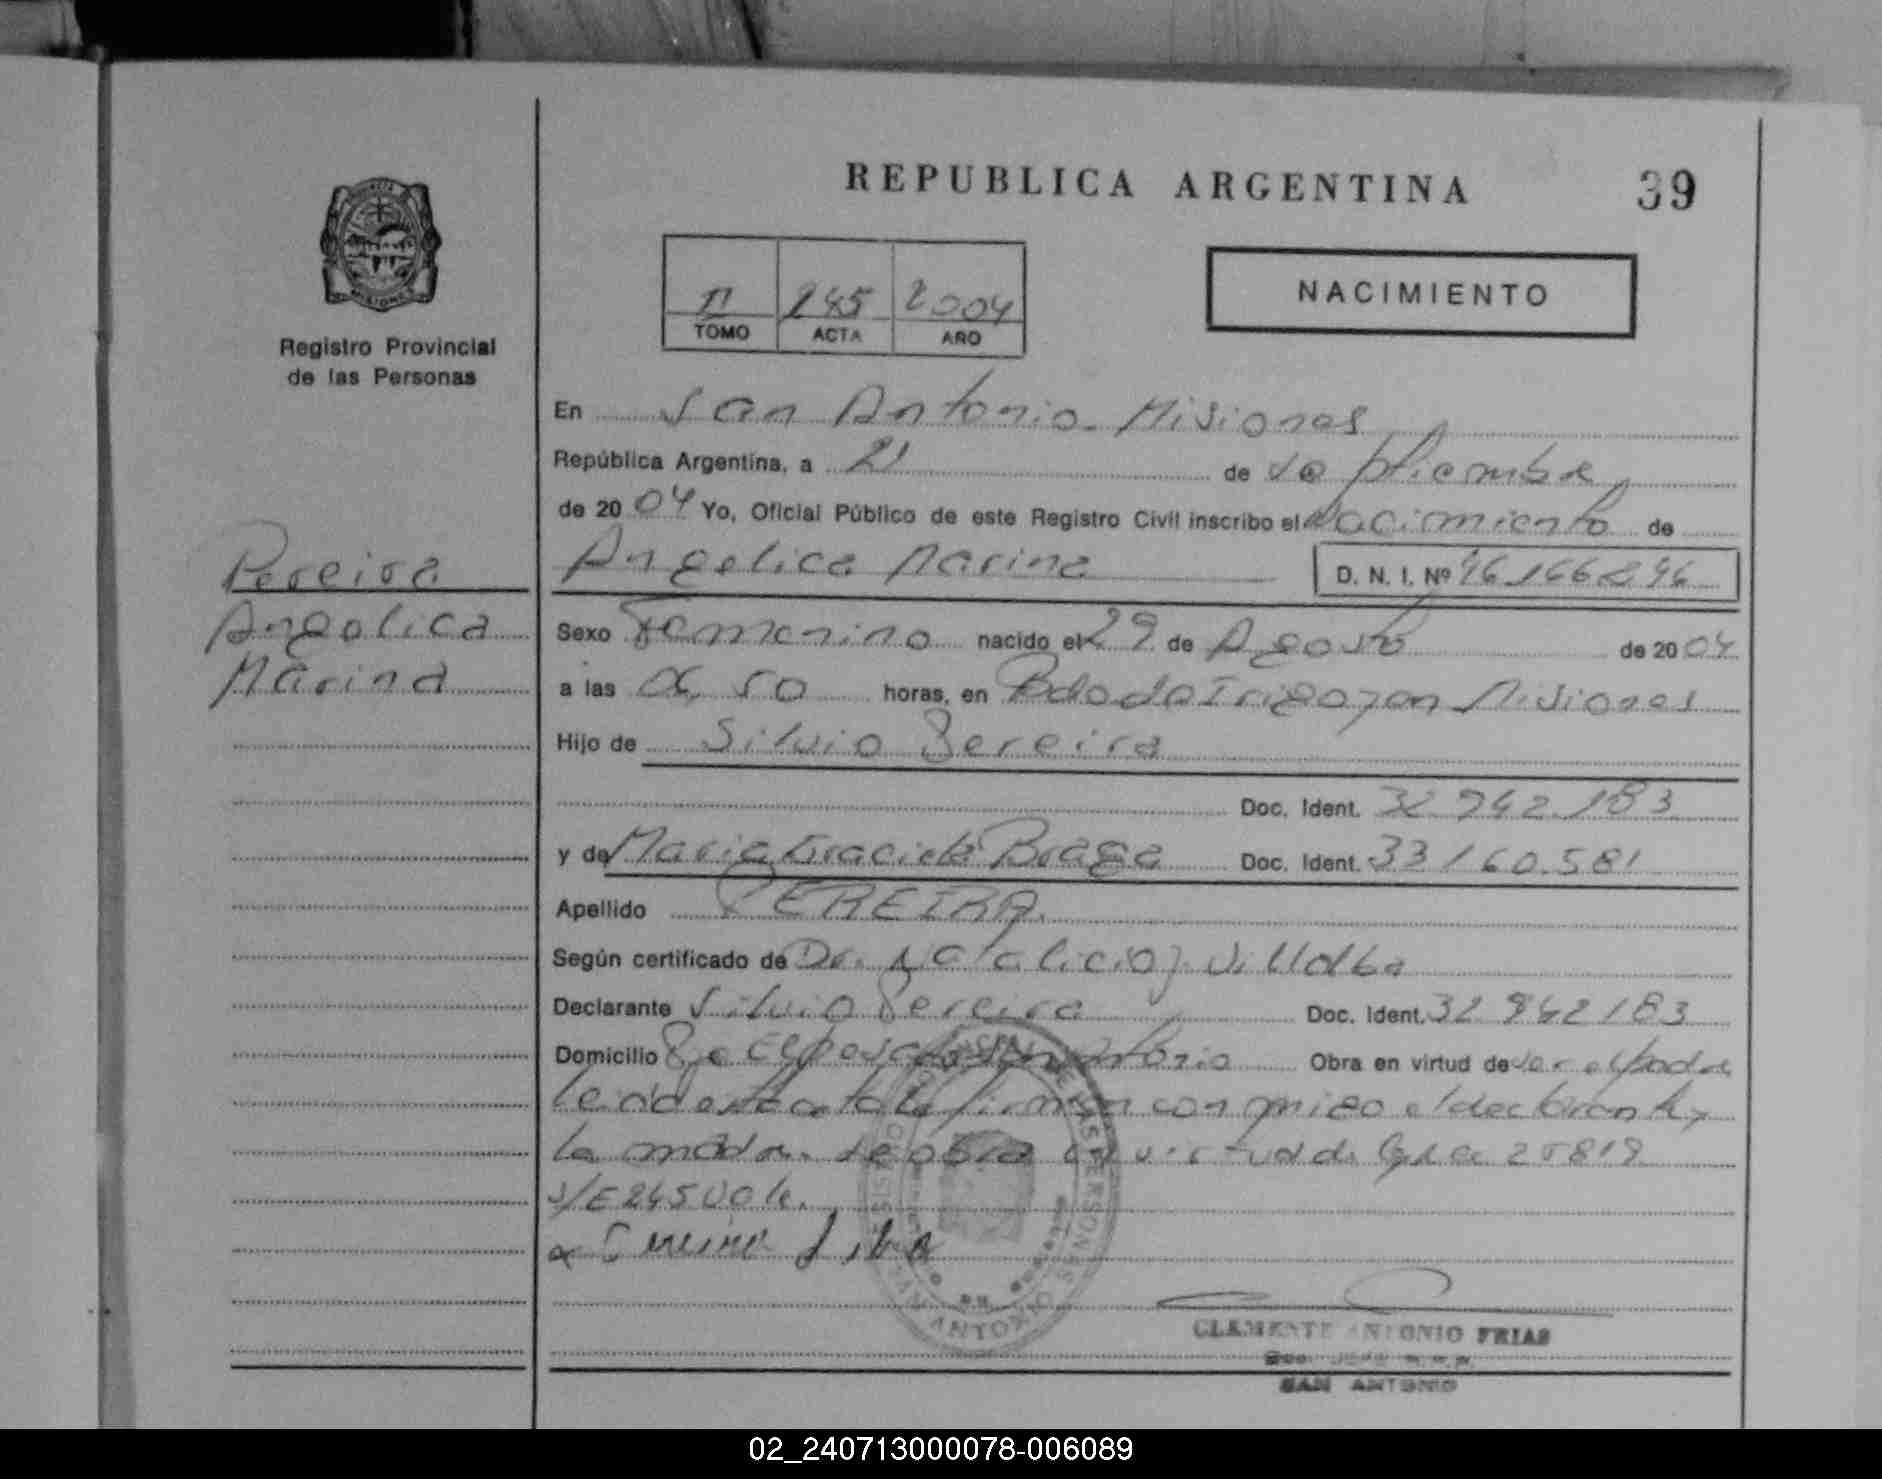 REPUBLICA ARGENTINA
39
MISIONES
Registro Provincial
de las Personas
II 245 2004
TOMO ACTA AÑO
NACIMIENTO
En San Antonio - Misiones
República Argentina, a 21 de Septiembre
de 20 04 Yo, Oficial Público de este Registro Civil inscribo el Nacimiento de
Pereira
Angelica
Marina
Angelica Marina D. N. I. Nº
Sexo Femenino nacido el 29 de Agosto de 20 04
a las horas, en Bdo de Irigoyen Misiones
Hijo de Silvio Pereira
Doc. Ident. 32.942.183
y de Maria Graciela Braga Doc. Ident. 33160.581
Apellido PEREIRA.
Según certificado de Dr. Natalicio J. Villalba
Declarante Silvio Pereira Doc. Ident. 32 942183
Domicilio San Antonio Obra en virtud de ser el padre
Leida esta acta la firman conmigo el declarante y
la madre. obra en virtud de Ley 25819
S/E 245 Vale.
REGISTRO PROVINCIAL DE LAS PERSONAS
SAN ANTONIO
CLEMENTE ANTONIO FRIAS
SAN ANTONIO
02_240713000078-006089